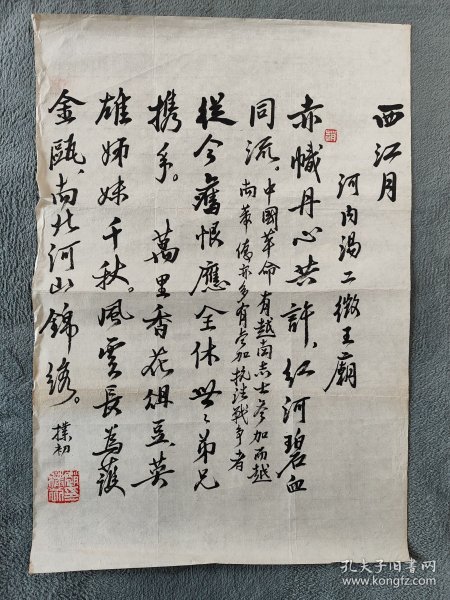 西江月
河内谒二徵王廟
赤幟丹心共許，紅河碧血
同流。中國革命有越南志士參加而越
南華僑亦多有參加抗法戰爭者
從今舊恨應全休世々弟兄
携手。萬里香花俎豆，英
雄姊妹千秋。風雲長爲護
金甌，南北河山錦綉。
樸初
孔夫子旧书网
www.kongfz.com